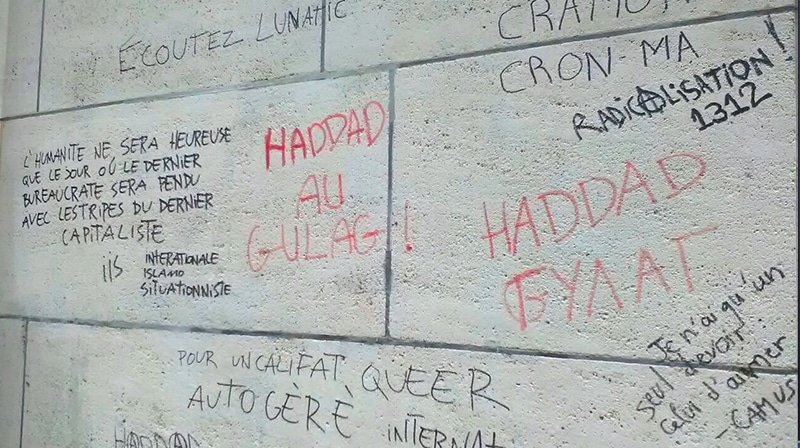 ÉCOUTEZ LUNATIC
CRON-MA
RADICALISATION!
1312
L'HUMANITE NE SERA HEUREUSE
QUE LE JOUR OÙ LE DERNIER
BUREAUCRATE SERA PENDU
AVEC LES TRIPES DU DERNIER
CAPITALISTE
iiS
INTERATIONALE
ISLAMO
SITUATIONNISTE
HADDAD
AU
GULAG !
HADDAD
GYΛAΓ
Je n'ai qu'un
seul devoir :
celui d'aimer
- CAMUS
POUR UN CALIFAT QUEER
AUTOGÈRÈ
INTERNAT
HADDAD